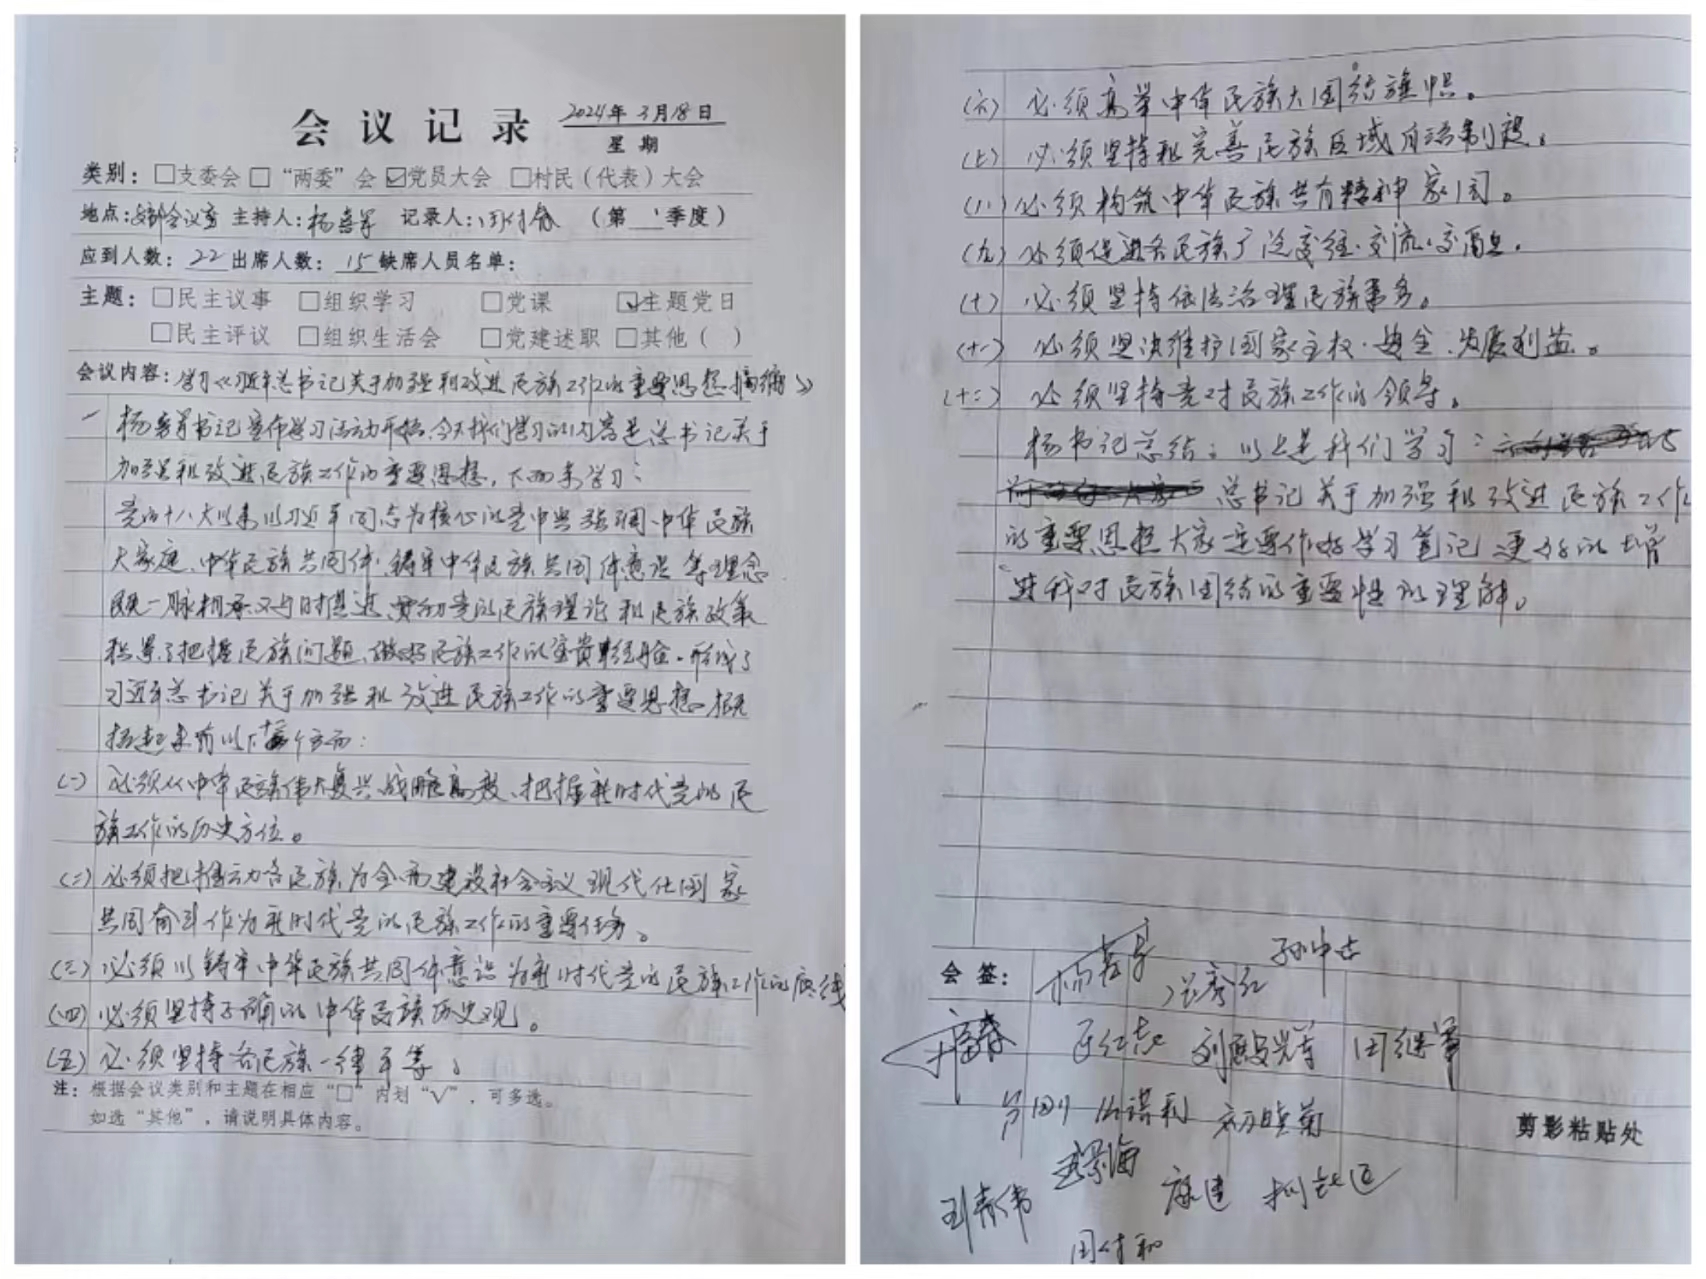 会议记录 2024年3月18日
星期
类别：□支委会 □“两委”会 ☑党员大会 □村民（代表）大会
地点：支部会议室 主持人：杨喜军 记录人： （第1季度）
应到人数：22 出席人数：15 缺席人员名单：
主题：□民主议事 □组织学习 □党课 ☑主题党日
□民主评议 □组织生活会 □党建述职 □其他（ ）
会议内容：学习《习近平总书记关于加强和改进民族工作的重要思想摘编》
一 杨喜军书记宣布学习活动开始，今天我们学习的内容是总书记关于
加强和改进民族工作的重要思想，下面来学习：
党的十八大以来以习近平同志为核心的党中央强调中华民族
大家庭、中华民族共同体、铸牢中华民族共同体意识等理念
既一脉相承又与时俱进 党的民族理论和民族政策
积累了把握民族问题、做好民族工作的宝贵经验。形成了
习近平总书记关于加强和改进民族工作的重要思想。概
括起来有以下十二个方面：
（一）必须从中华民族伟大复兴战略高度、把握新时代党的民
族工作的历史方位。
（二）必须把推动各民族为全面建设社会主义现代化国家
共同奋斗作为新时代党的民族工作的重要任务。
（三）必须以铸牢中华民族共同体意识为新时代党的民族工作的
（四）必须坚持正确的中华民族历史观。
（五）必须坚持各民族一律平等。
注：根据会议类别和主题在相应“□”内划“√”，可多选。
如选“其他”，请说明具体内容。
（六）必须高举中华民族大团结旗帜。
（七）必须坚持和完善民族区域自治制度。
（八）必须构筑中华民族共有精神家园。
（九）必须促进各民族广泛交往、交流、交
（十）必须坚持依法治理民族事务。
（十一）必须坚决维护国家主权、安全、发展利益。
（十二）必须坚持党对民族工作的领导。
杨书记总结：以上是我们学习：
总书记关于加强和改进民族工作
的重要思想大家还要作好学习笔记 更好的增
进我对民族团结的重要性的理解。
会签： 杨喜军
剪影粘贴处